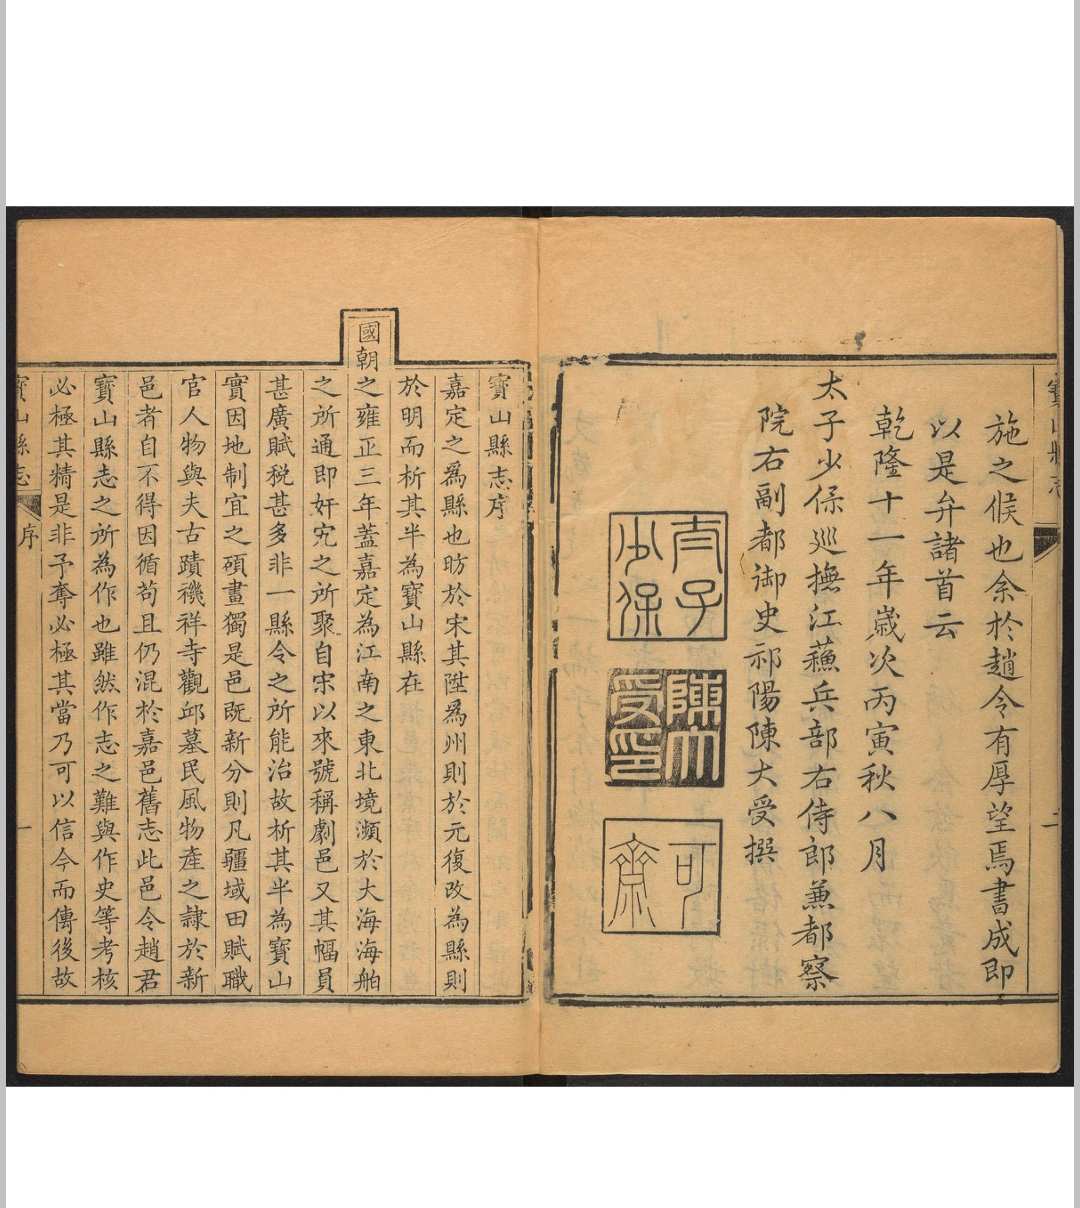 施之候也余於趙令有厚望焉書成即
以是弁諸首云
乾隆十一年歲次丙寅秋八月
太子少保巡撫江蘓兵部右侍郎兼都察
院右副都御史祁陽陳大受撰
太子
少保
陳大
受印
可
齋
寶山縣志序
嘉定之為縣也昉於宋其陞為州則於元復改為縣則
於明而析其半為寶山縣在
國朝之雍正三年蓋嘉定為江南之東北境瀕於大海海舶
之所通即奸宄之所聚自宋以來號稱劇邑又其幅員
甚廣賦税甚多非一縣令之所能治故析其半為寶山
實因地制宜之碩畫獨是邑既新分則凡疆域田賦職
官人物與夫古蹟禨祥寺觀邱墓民風物產之隷於新
邑者自不得因循苟且仍混於嘉邑舊志此邑令趙君
寶山縣志之所為作也雖然作志之難與作史等考核
必極其精是非予奪必極其當乃可以信今而傳後故
寶山縣志
序
一